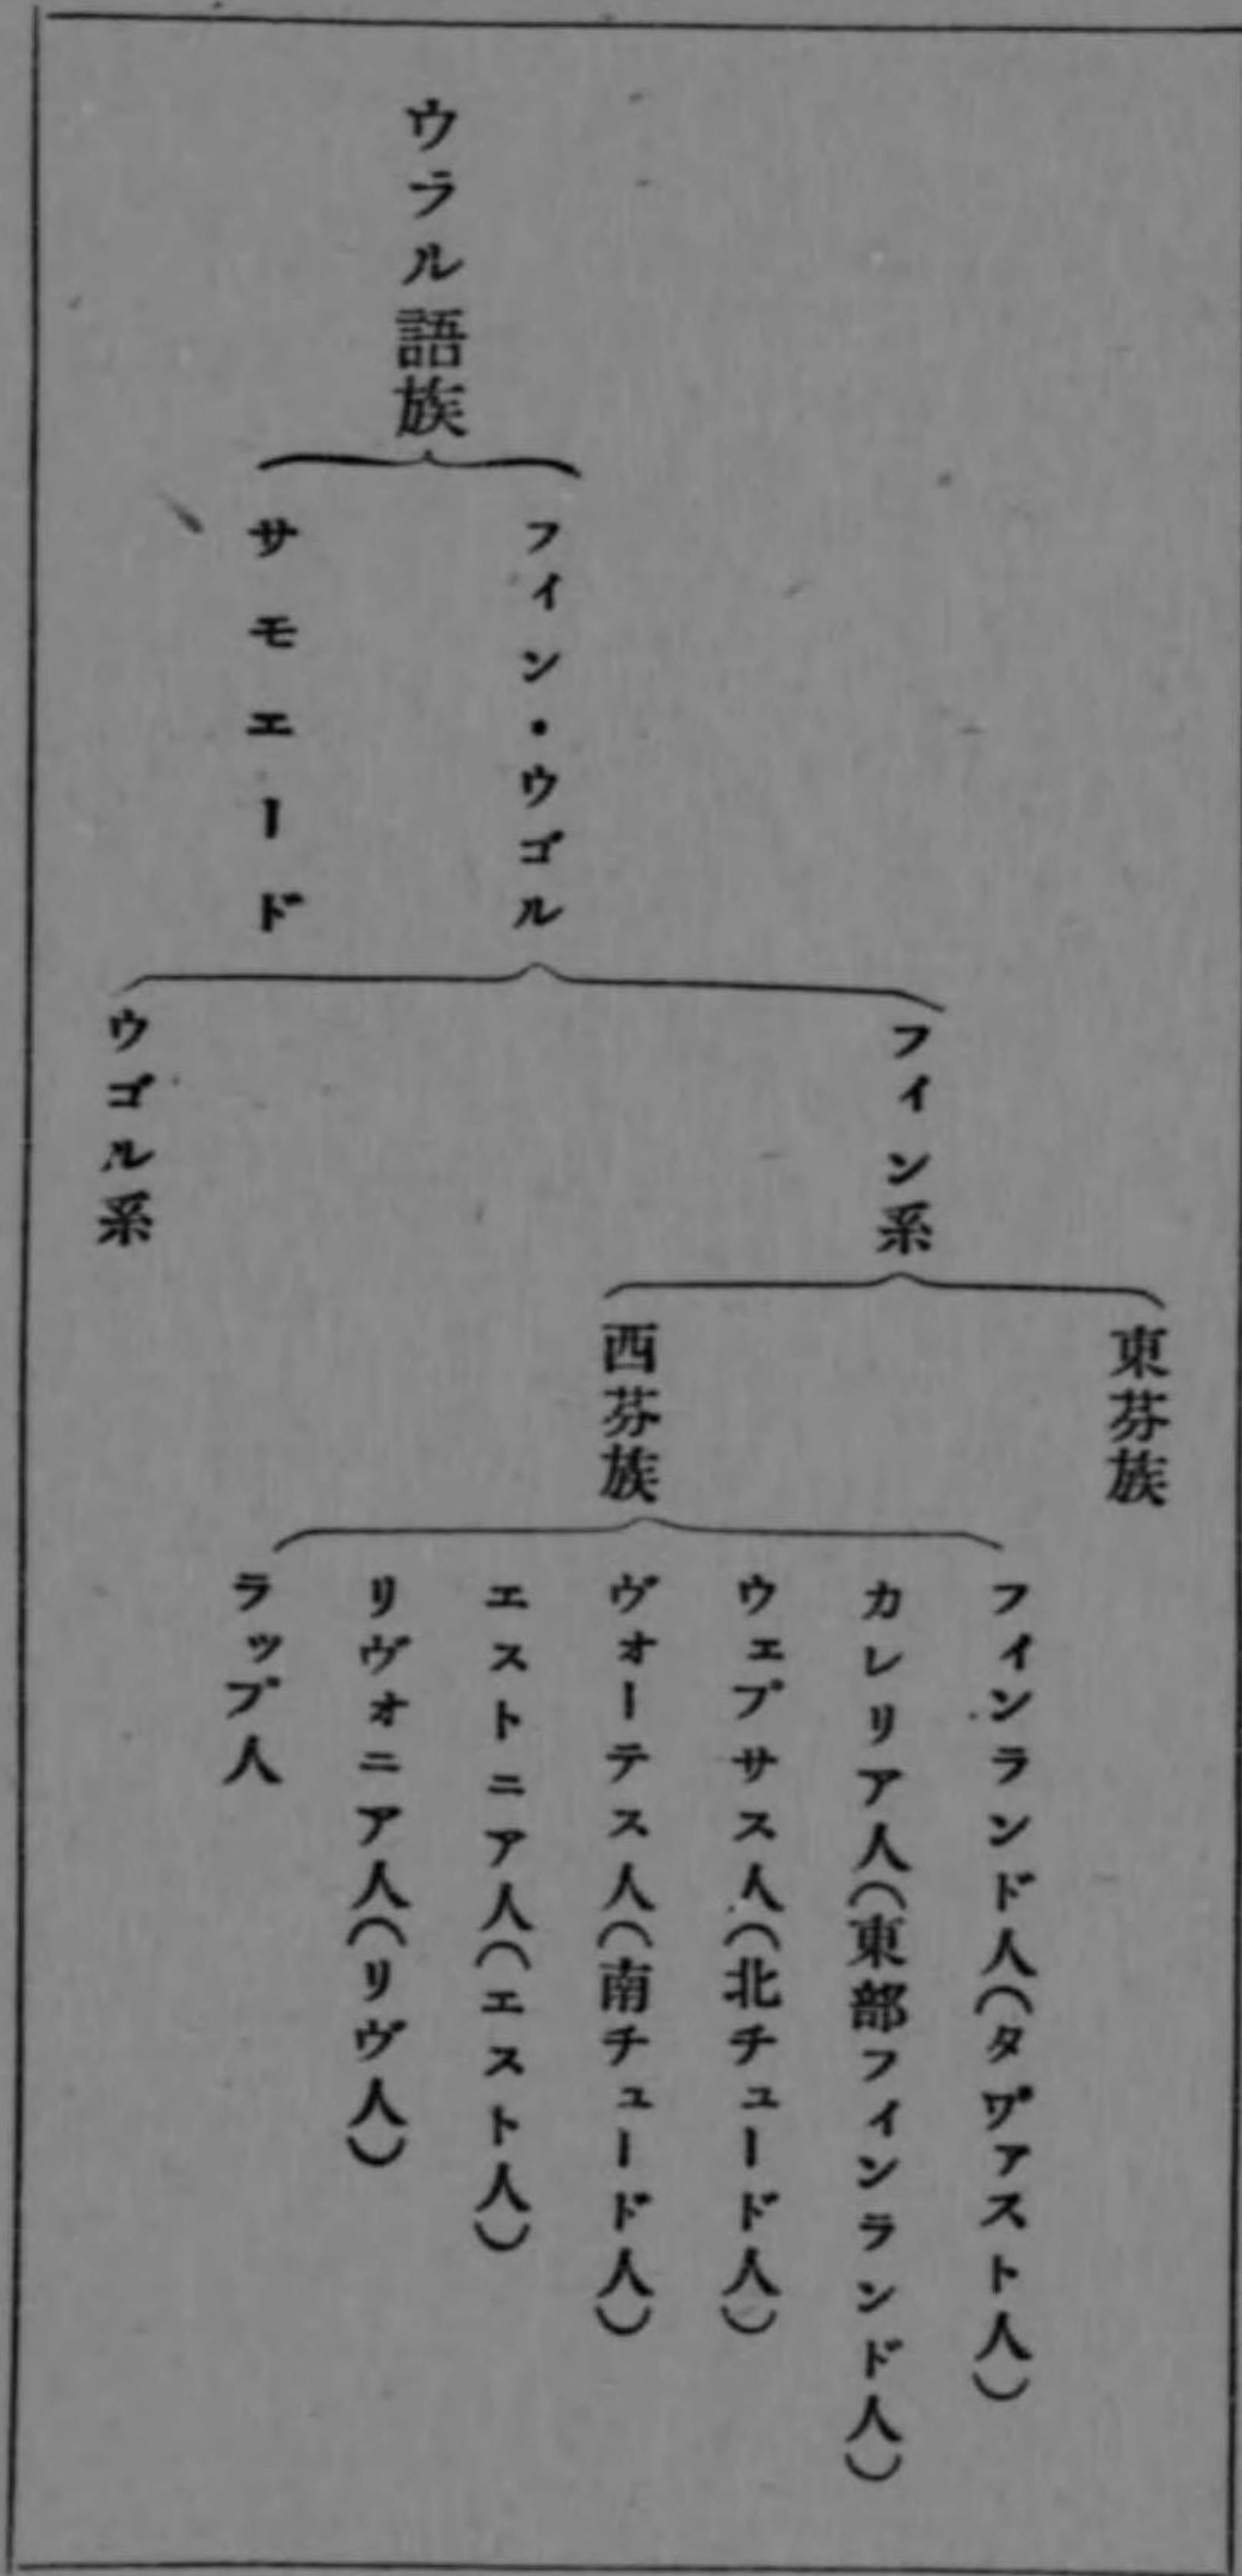 ウラル語族
フイン・ウゴル
サモエード
フイン系
ウゴル系
東芬族
西芬族
フインランド人(タヷァスト人)
カレリア人(東部フインランド人)
ウェプサス人(北チュード人)
ヴォーテス人(南チュード人)
エストニア人(エスト人)
リヴォニア人(リヴ人)
ラップ人